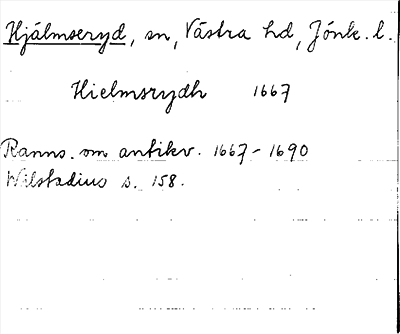 Hjälmseryd, sn, Västra hd, Jönk. l.
Hielmsrydh 1667
Ranns. om antikv. 1667-1690
Wilstadius s. 158.